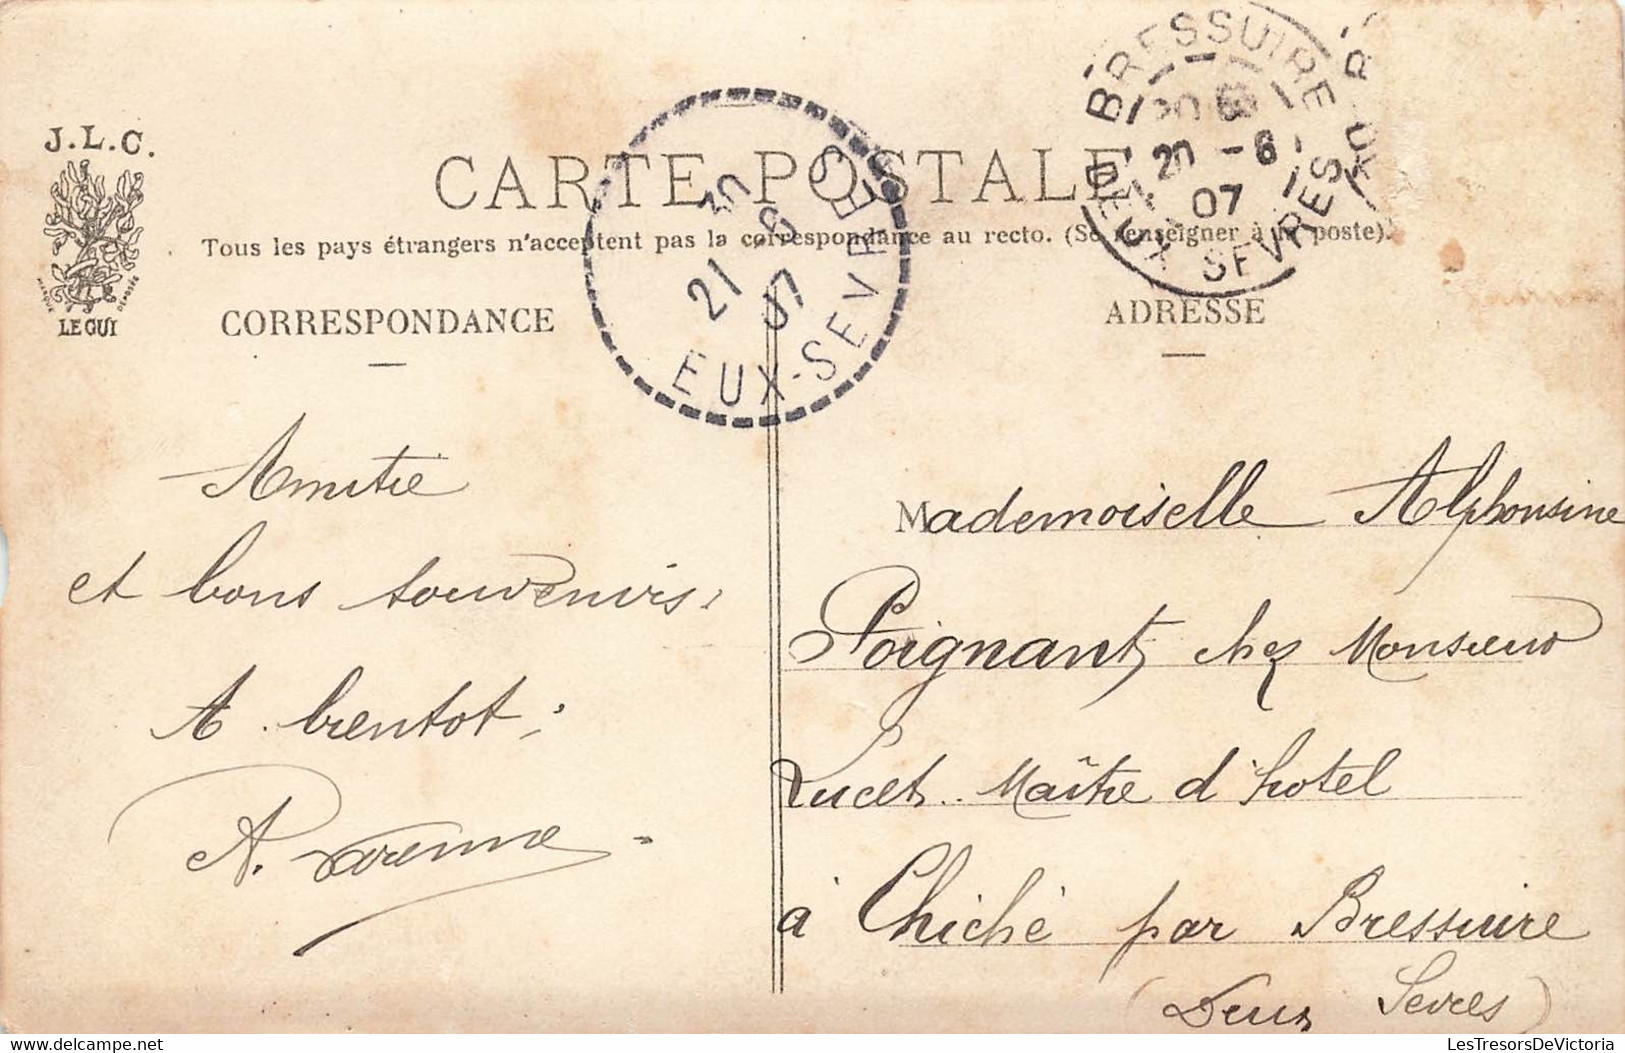 J.L.C.
MARQUE DÉPOSÉE
LE GUI
CARTE POSTALE
Tous les pays étrangers n'acceptent pas la correspondance au recto. (Se renseigner à la poste).
CORRESPONDANCE
ADRESSE
BRESSUIRE
20 -6
07
DEUX SEVRES
21 -6
07
EUX-SEVRES
Amitié
et bons souvenirs.
A bientot.
A. Varenne
Mademoiselle Alphonsine
Poignant, chez Monsieur
Lucet. Maître d'hotel
à Chiché par Bressuire
(Deux Sevres)
LesTresorsDeVictoria